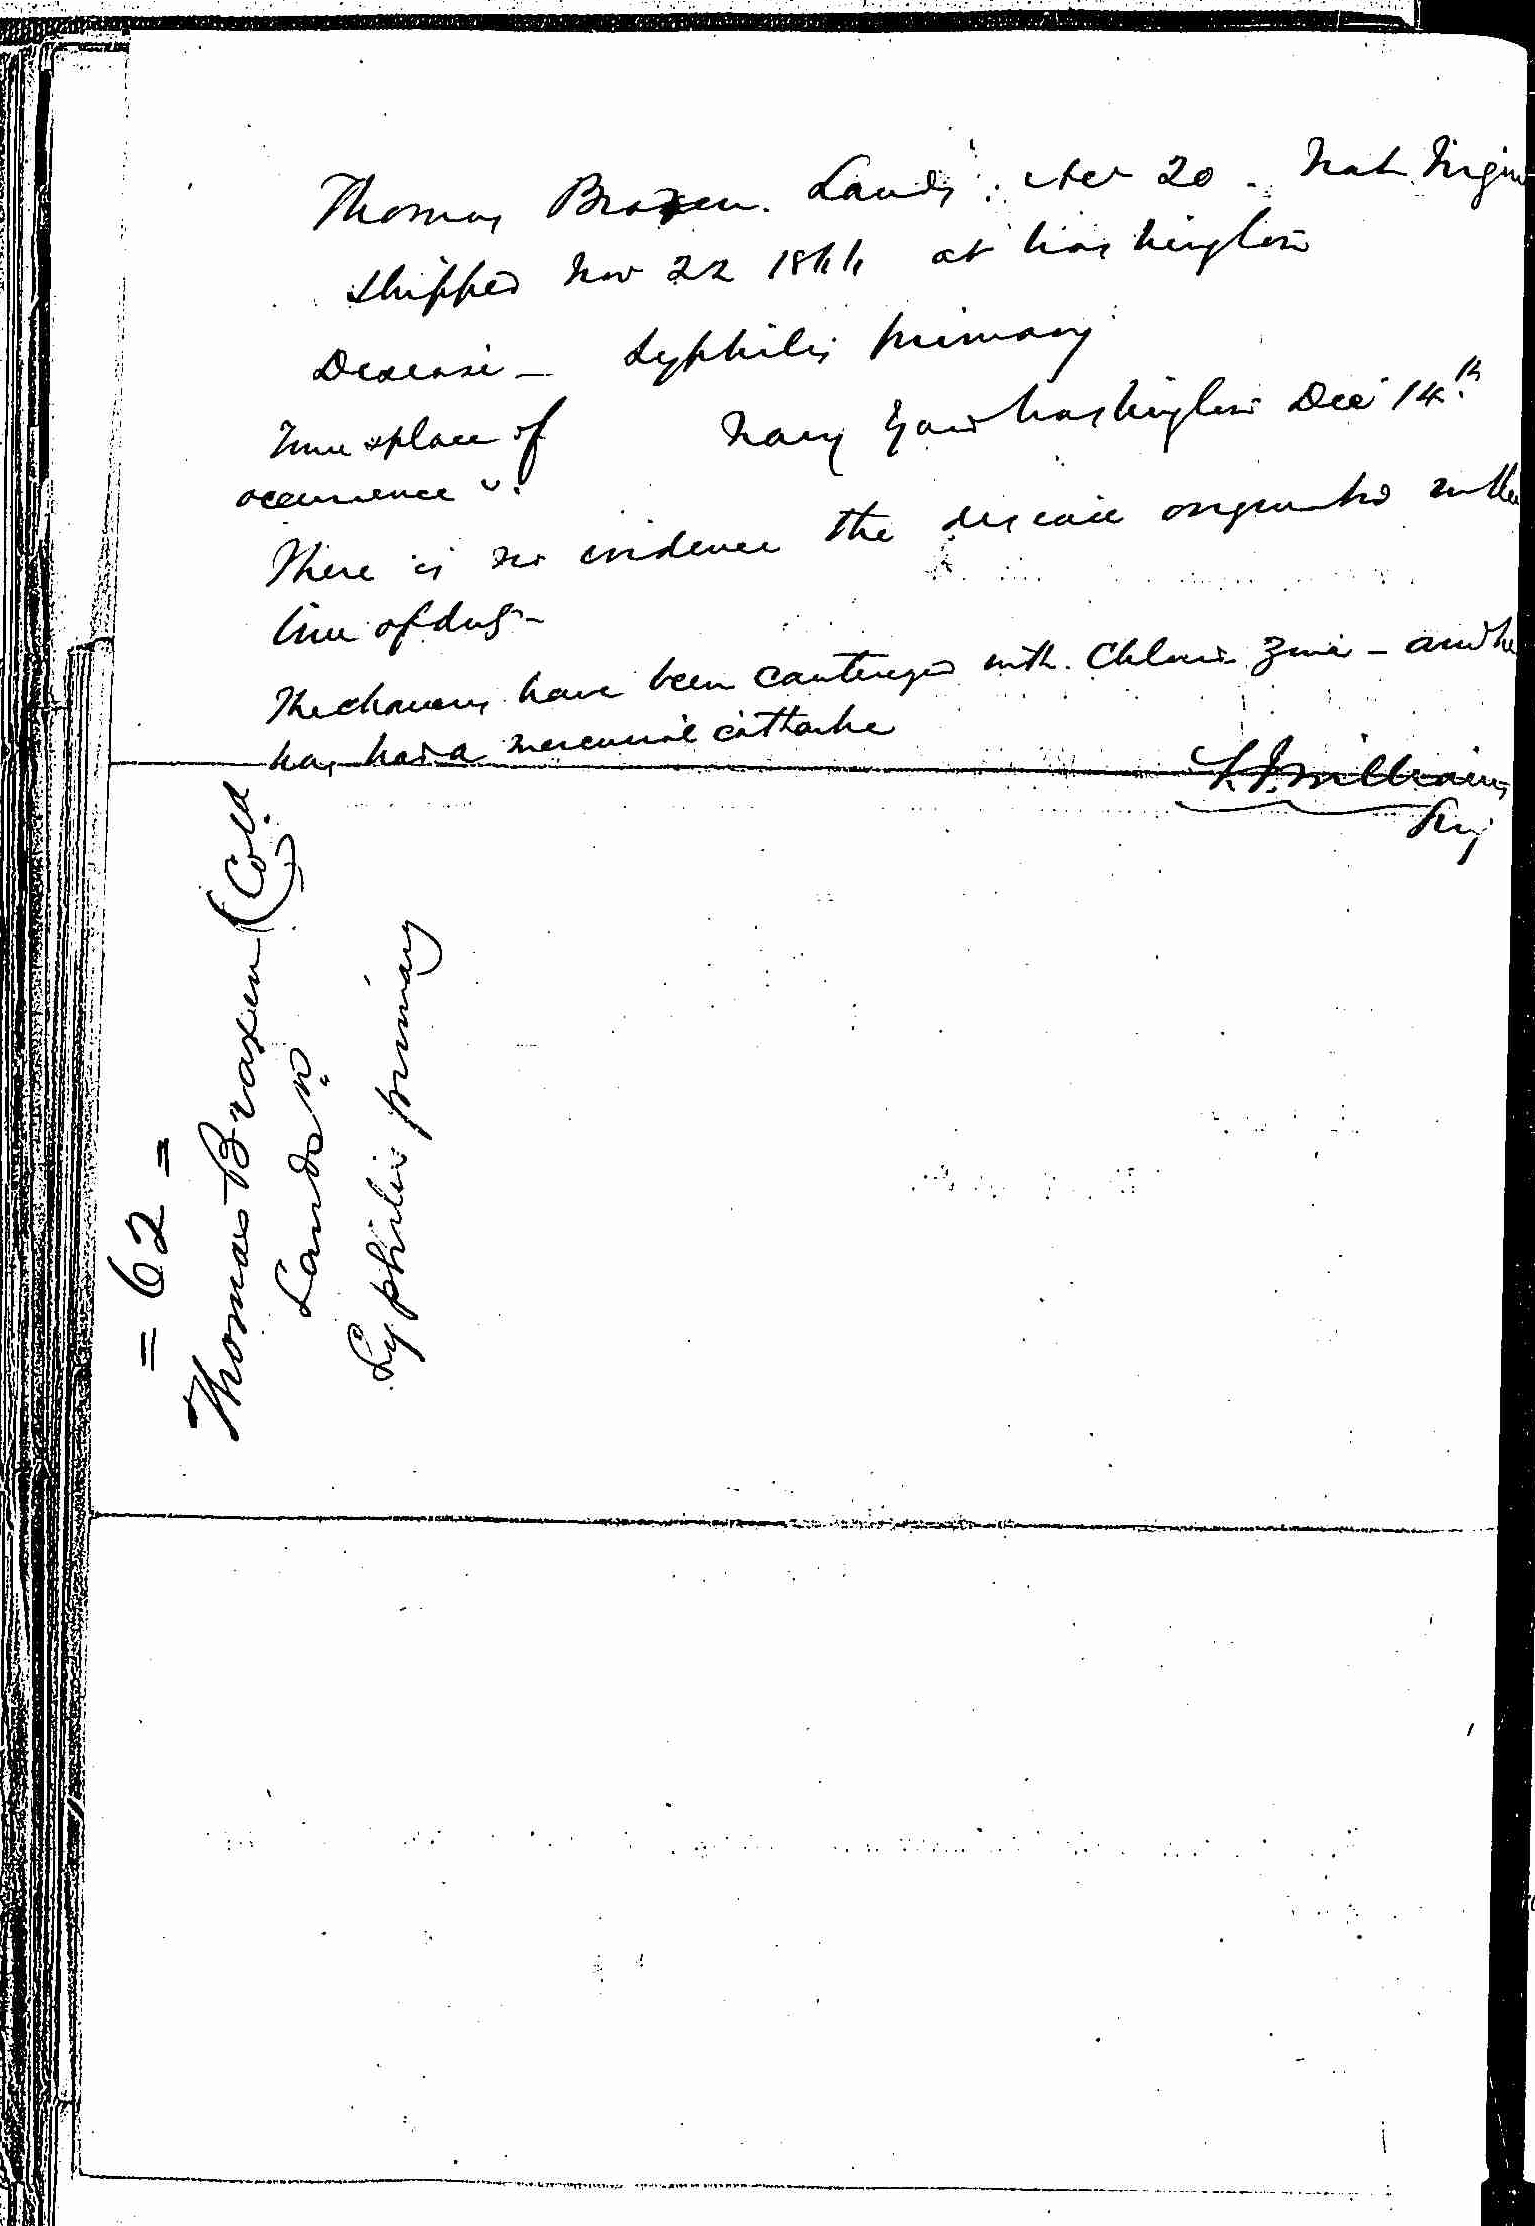 Thomas Braxen. Lands: Aet 20. Nat. Virgin
Shipped Nov 22 1866 at Washington
Disease - Syphilis primary
Time & place of Navy Yard Washington Dec 14th
occurrence
There is no evidence the disease originated in the
line of duty -
The chancres have been cauterized with Chlorid Zinc - and he
has had a mercurial cathartic
Williams
Surg
= 62 =
Thomas Braxen (Cold)
Landsn.
Syphilis primary